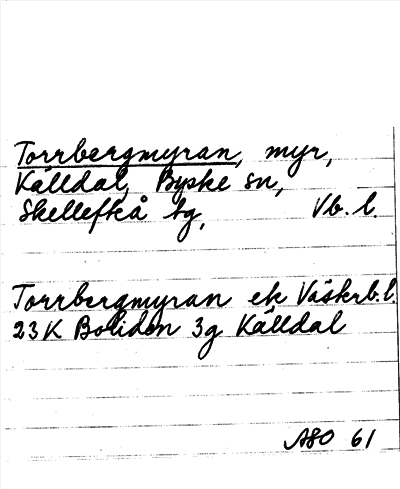 Torrbergmyran, myr,
Källdal, Byske sn,
Skellefteå tg, Vb. l.
Torrbergmyran ek Västerb. l.
23K Boliden 3g Källdal
ASO 61